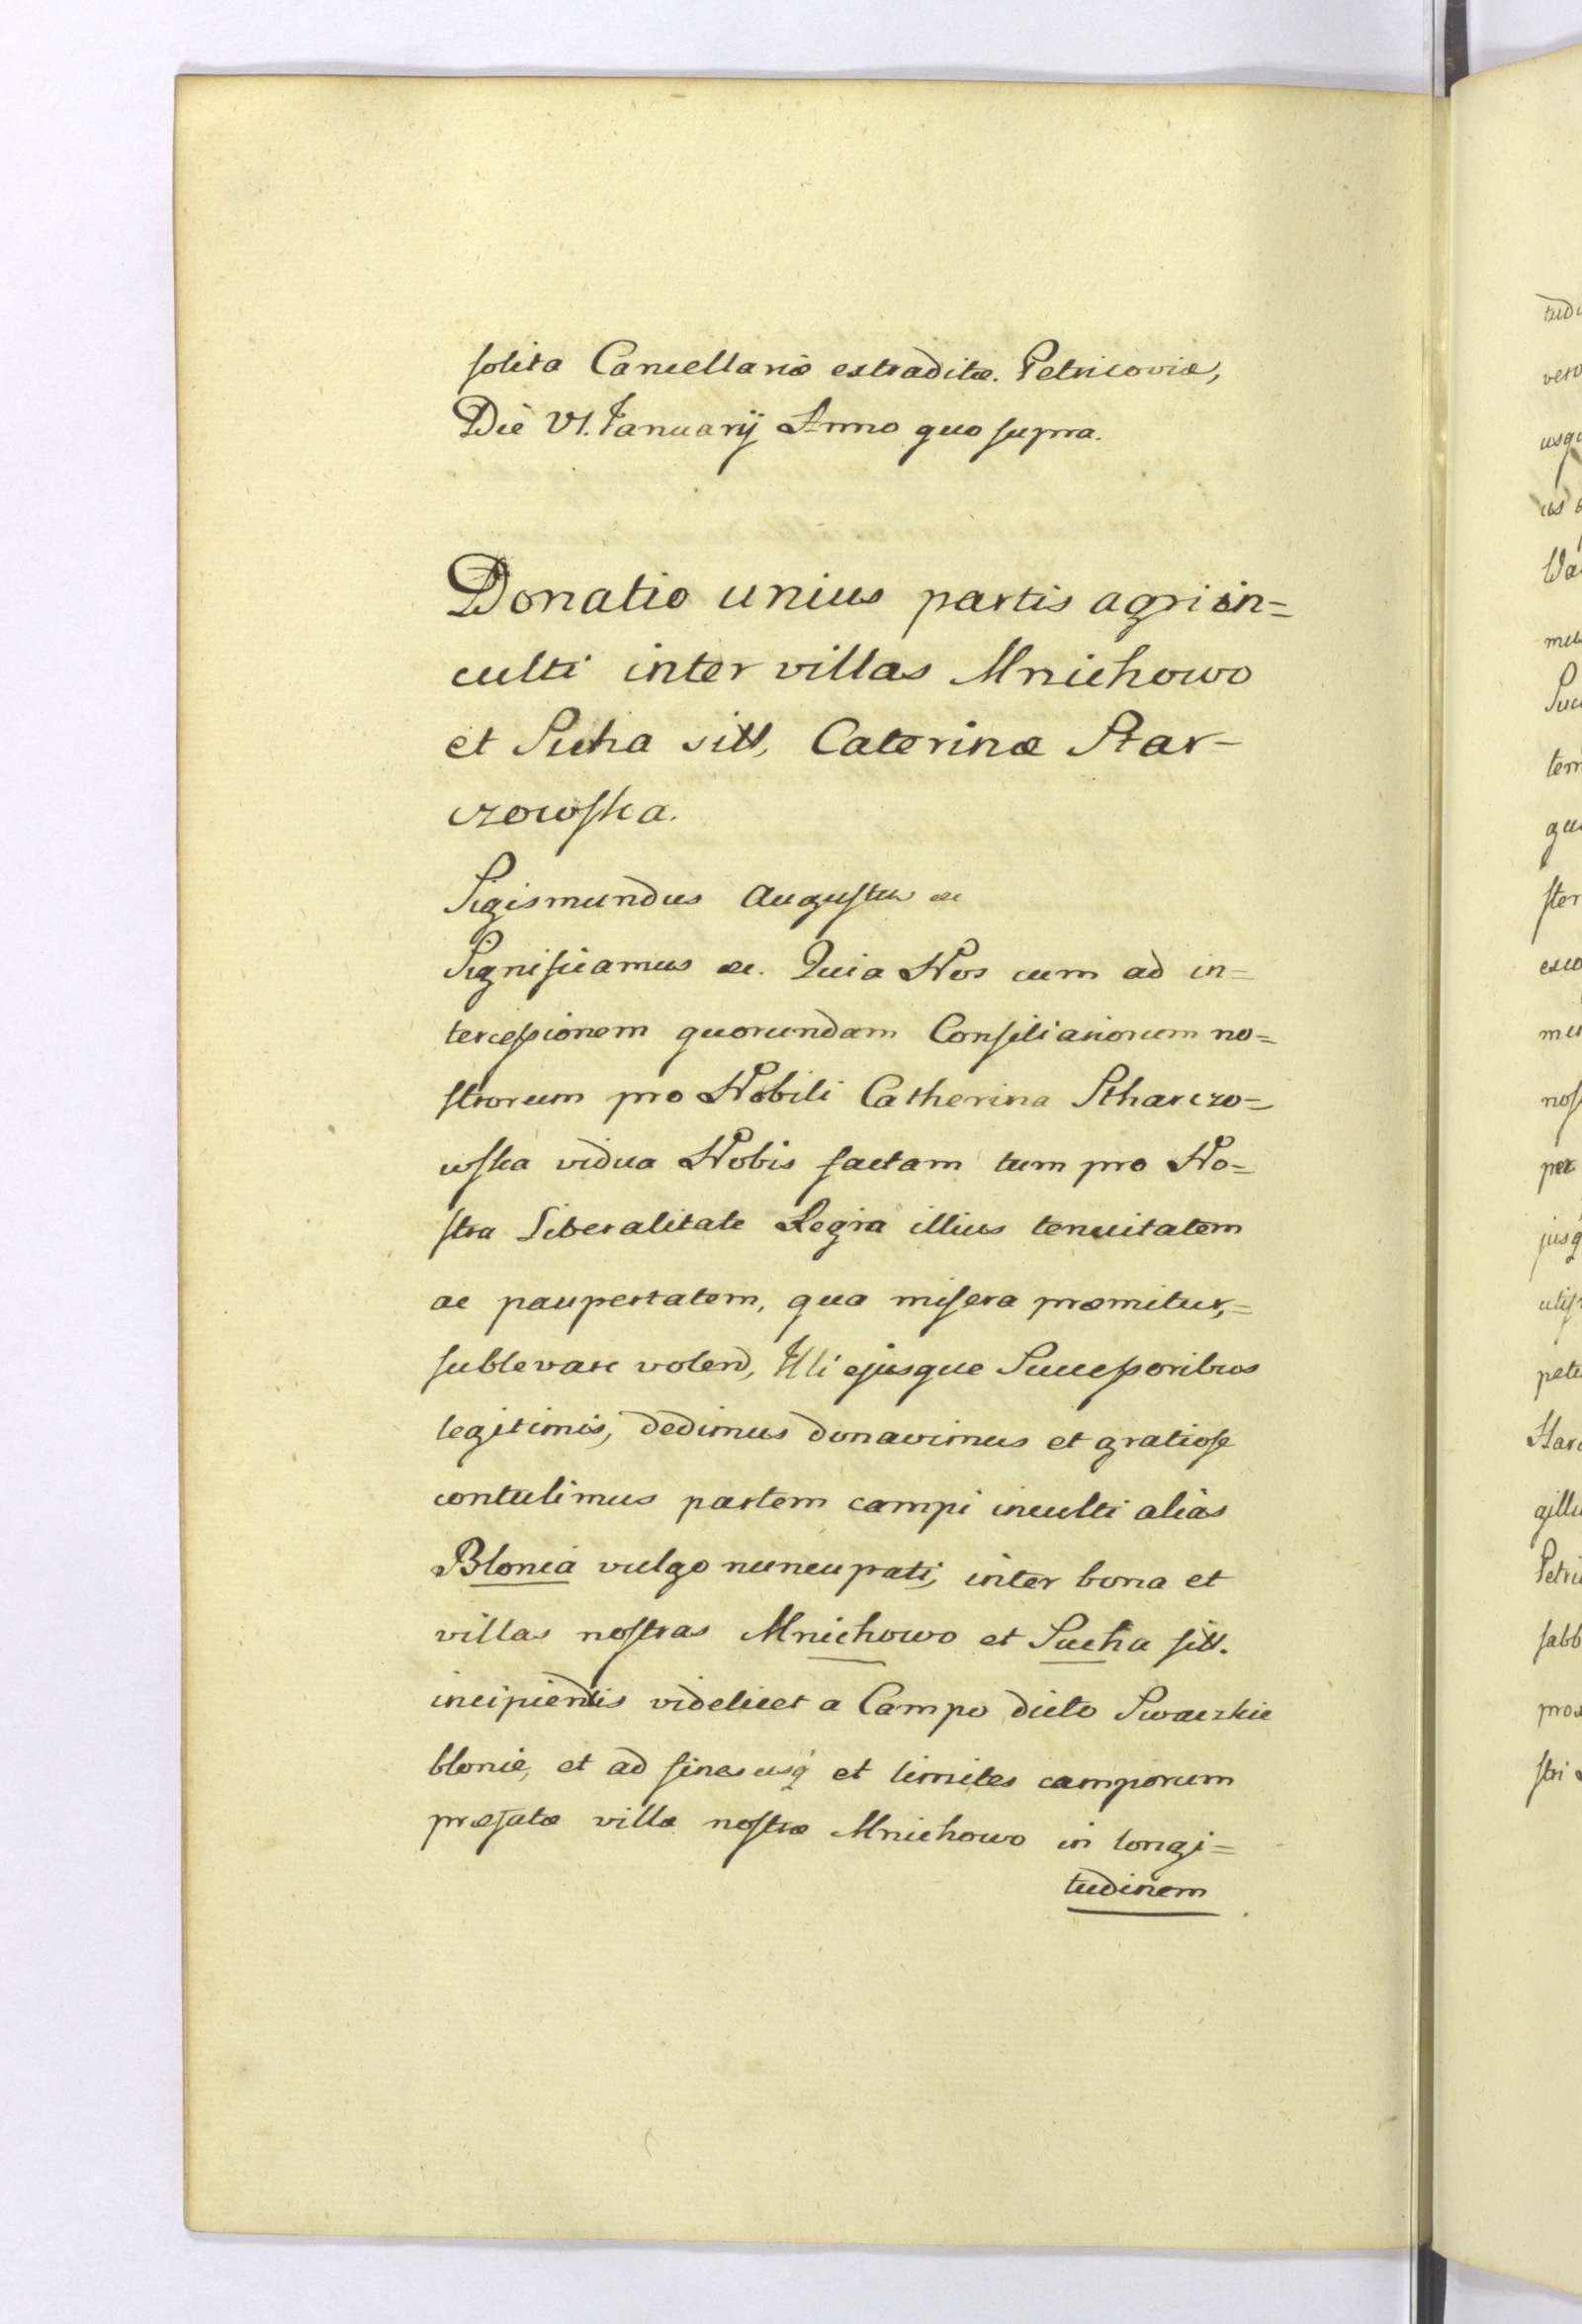 solita Cancellariæ extraditæ. Petricoviæ,
Die VI. Januarij Anno quo supra.
Donatio unius partis agri in=
culti inter villas Mnichowo
et Sucha sitt, Caterinæ Star-
czowska.
Sigismundus Augustus etc
Significamus etc. Quia Nos cum ad in=
tercessionem quorundam Consiliariorum no=
strorum pro Nobili Catherina Stharczo=
wska vidua Nobis factam tum pro No=
stra Liberalitate Regia illius tenuitatem
ac paupertatem, qua misera præmitur,=
sublevare volend, Illi ejusque Successoribus
legitimis, dedimus donavimus et gratiose
contulimus partem campi inculti alias
Blonia vulgo nuncupati, inter bona et
villas nostras Mnichowo et Sucha sitt.
incipientis videlicet a Campo dicto Swaczkie
blonie, et ad fines usq et limites camporum
præfatæ villæ nostræ Mnichowo in longi=
tudinem
tudi
vero
usq
Wa
Suc
tem
ster
nos
per
jusq
pete
gillu
Petri
sabb
stri